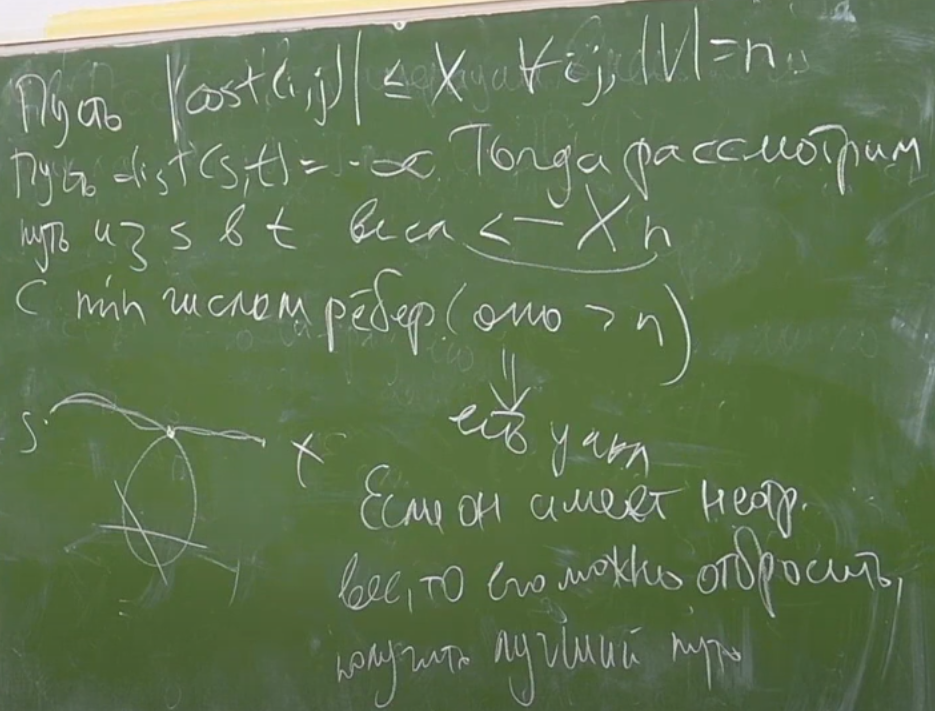 Пусть |cost(i,j)| ≤ X ∀ i,j, |V|=n.
Пусть dist(s,t) = -∞. Тогда рассмотрим
путь из s в t веса < -Xn
с min числом рёбер (оно > n)
⇓
s t есть цикл
Если он имеет неотр.
вес, то его можно отбросить,
получить лучший путь